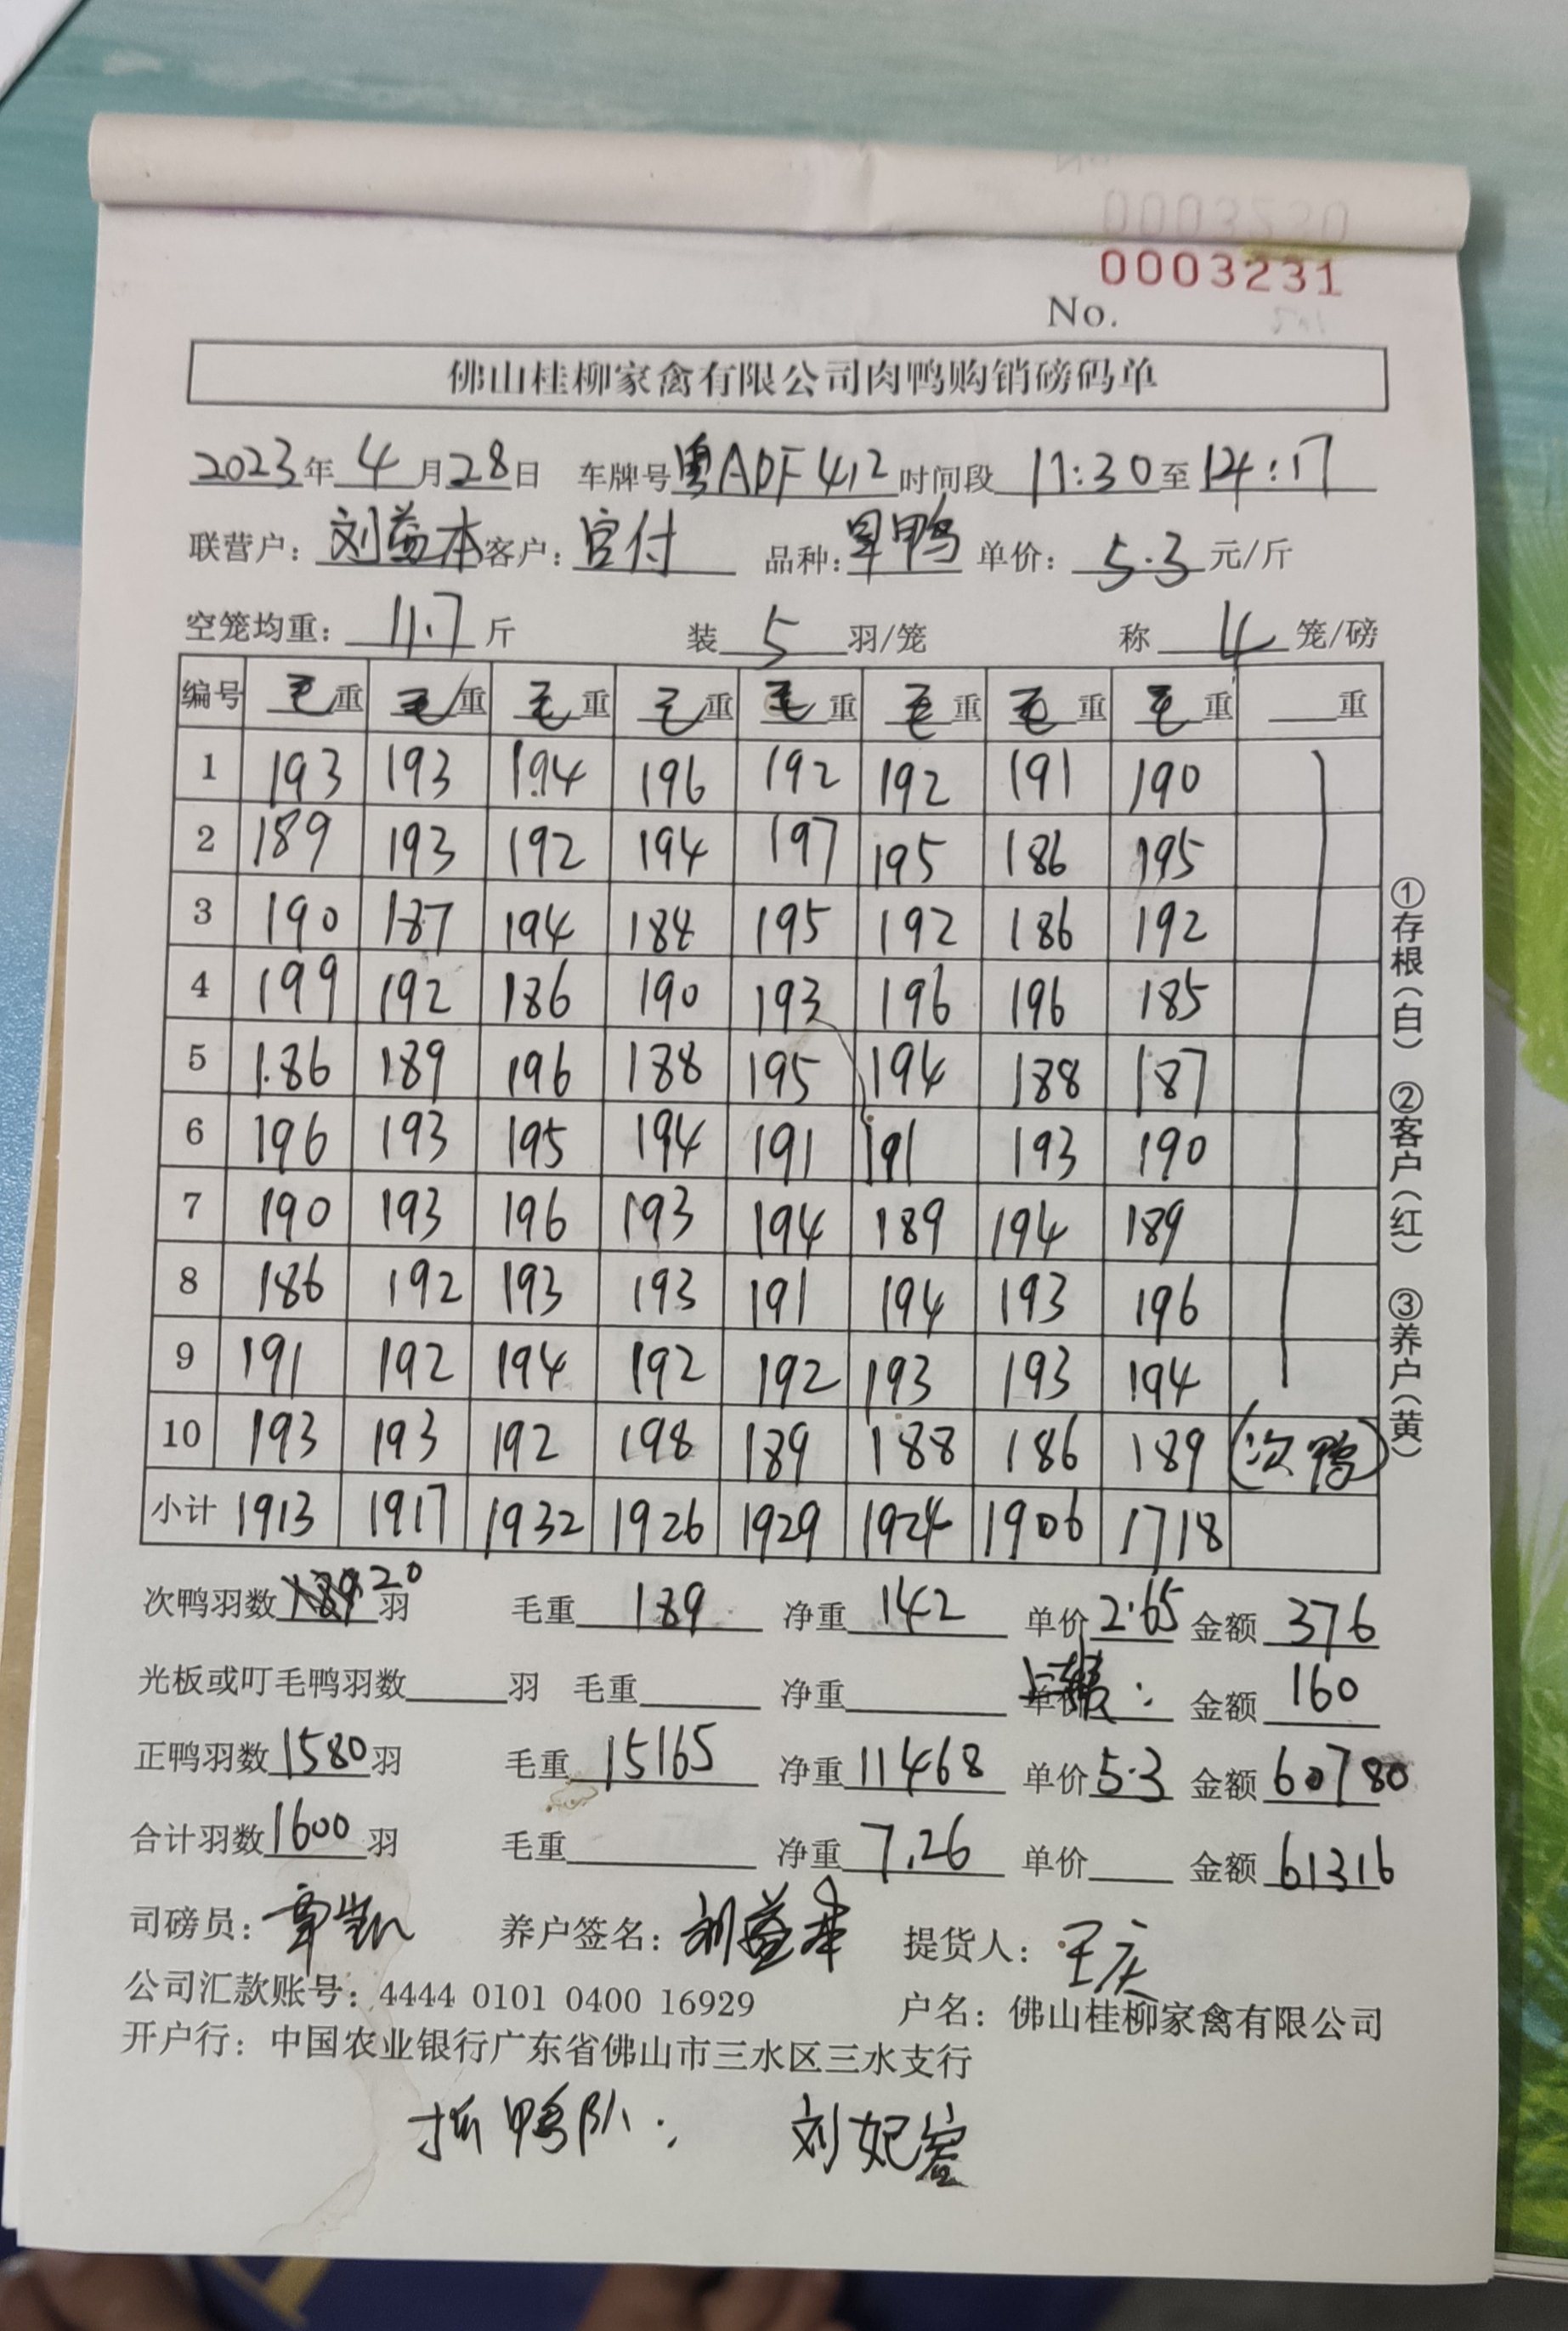 0003230
0003231
No.
佛山桂柳家禽有限公司肉鸭购销磅码单
2023年 4月28日 车牌号 粤ADF412 时间段 11:30至14:17
联营户:刘益本 客户:官付 品种: 单价:5.3元/斤
空笼均重:11.7斤 装5羽/笼 称4笼/磅
编号 毛重 毛重 毛重 毛重 毛重 毛重 毛重 毛重 重
1 193 193 194 196 192 192 191 190
2 189 193 192 194 197 195 186 195
3 190 187 194 188 195 192 186 192
4 199 192 186 190 193 196 196 185
5 186 189 196 188 195 194 188 187
6 196 193 195 194 191 191 193 190
7 190 193 196 193 194 189 194 189
8 186 192 193 193 191 194 193 196
9 191 192 194 192 192 193 193 194
10 193 193 192 198 189 188 186 189 (次鸭)
小计 1913 1917 1932 1926 1929 1924 1906 1718
次鸭羽数 189 20羽 毛重 189 净重 142 单价 2.65 金额 376
光板或叮毛鸭羽数 羽 毛重 净重 单价 : 金额 160
正鸭羽数 1580羽 毛重 15165 净重 11468 单价 5.3 金额 60780
合计羽数 1600羽 毛重 净重 7.26 单价 金额 61316
司磅员: 养户签名:刘益本 提货人:王庆
公司汇款账号:4444 0101 0400 16929 户名:佛山桂柳家禽有限公司
开户行:中国农业银行广东省佛山市三水区三水支行
抓鸭队: 刘妃
①存根(白) ②客户(红) ③养户(黄)